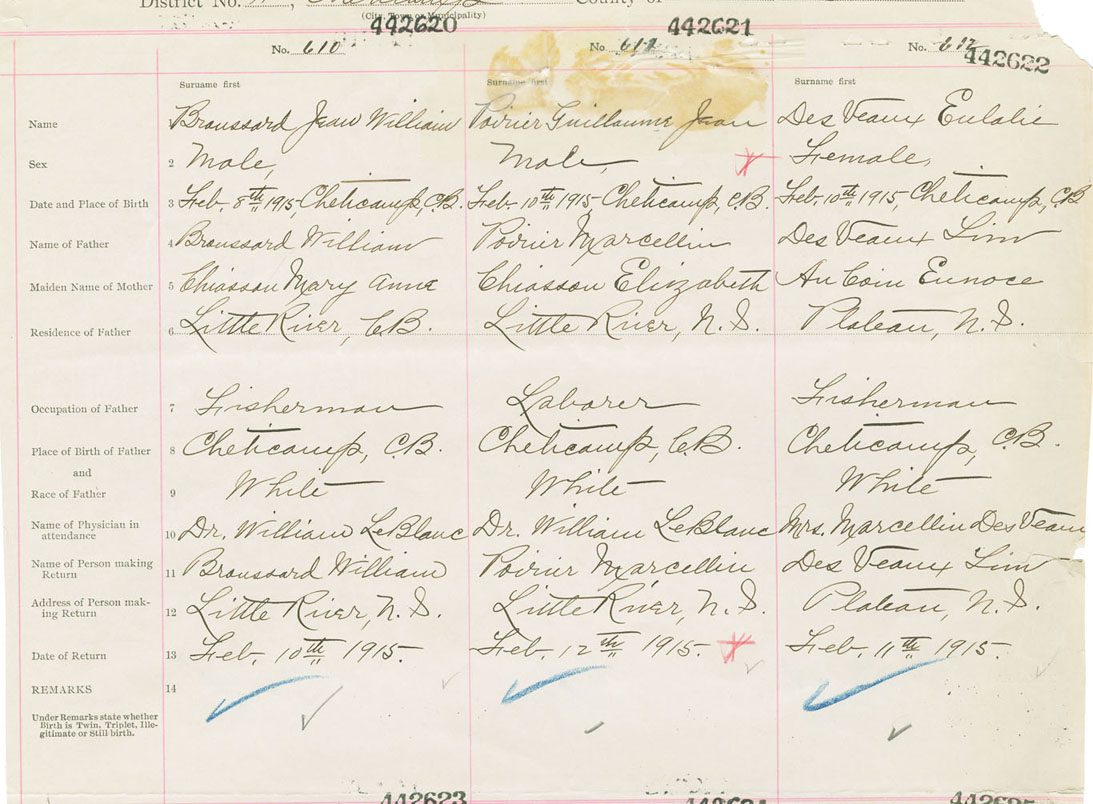 District No. County of
(City, Town or Municipality)
442620 442621
No. 610 No. 611 No. 612 442622
Surname first Surname first Surname first
Name 1 Broussard Jean William Poirier Guillaume Jean Des Veaux Eulalie
Sex 2 Male, Male, Female,
Date and Place of Birth 3 Feb. 8th 1915, Cheticamp, C.B. Feb. 10th 1915, Cheticamp, C.B. Feb. 10th 1915, Cheticamp, C.B
Name of Father 4 Broussard William Poirier Marcellin Des Veaux Lim
Maiden Name of Mother 5 Chiasson Mary Anne Chiasson Elizabeth Au Coin Eunoce
Residence of Father 6 Little River, C.B. Little River, N.S. Plateau, N.S.
Occupation of Father 7 Fisherman Laborer Fisherman
Place of Birth of Father 8 Cheticamp, C.B. Cheticamp, C.B. Cheticamp, C.B.
and
Race of Father 9 White White White
Name of Physician in
attendance 10 Dr. William LeBlanc Dr. William LeBlanc Mrs. Marcellin Des Veaux
Name of Person making
Return 11 Broussard William Poirier Marcellin Des Veaux Lim
Address of Person mak-
ing Return 12 Little River, N.S. Little River, N.S. Plateau, N.S.
Date of Return 13 Feb. 10th 1915. Feb. 12th 1915. Feb. 11th 1915.
REMARKS 14
Under Remarks state whether
Birth is Twin, Triplet, Ille-
gitimate or Still birth.
442623